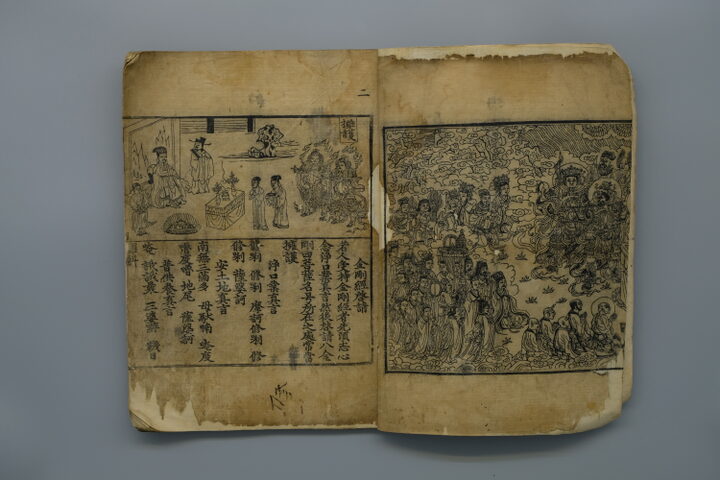 二
擁護
金剛經啓請
若人受持金剛經者先須志心
念淨口業真言然後啓請八金
剛四菩薩名号所在之處常當
擁護
淨口業真言
脩唎 脩唎 摩訶脩唎 脩
脩唎 薩婆訶
安土地真言
南無三滿多 母馱喃 唵度
嚕度嚕 地尾 薩婆訶
普供養真言
唵 誐誐曩 三婆縛 襪日